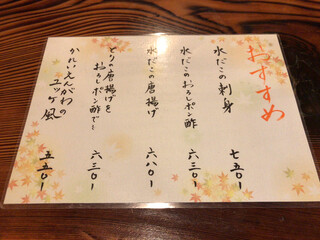 おすすめ
水だこの刺身
七五〇ー
水だこのおろしポン酢
六三〇ー
水だこの唐揚げ
六八〇ー
とりの唐揚げを
おろしポン酢で…
六三〇ー
かれいえんがわの
ユッケ風
五五〇ー